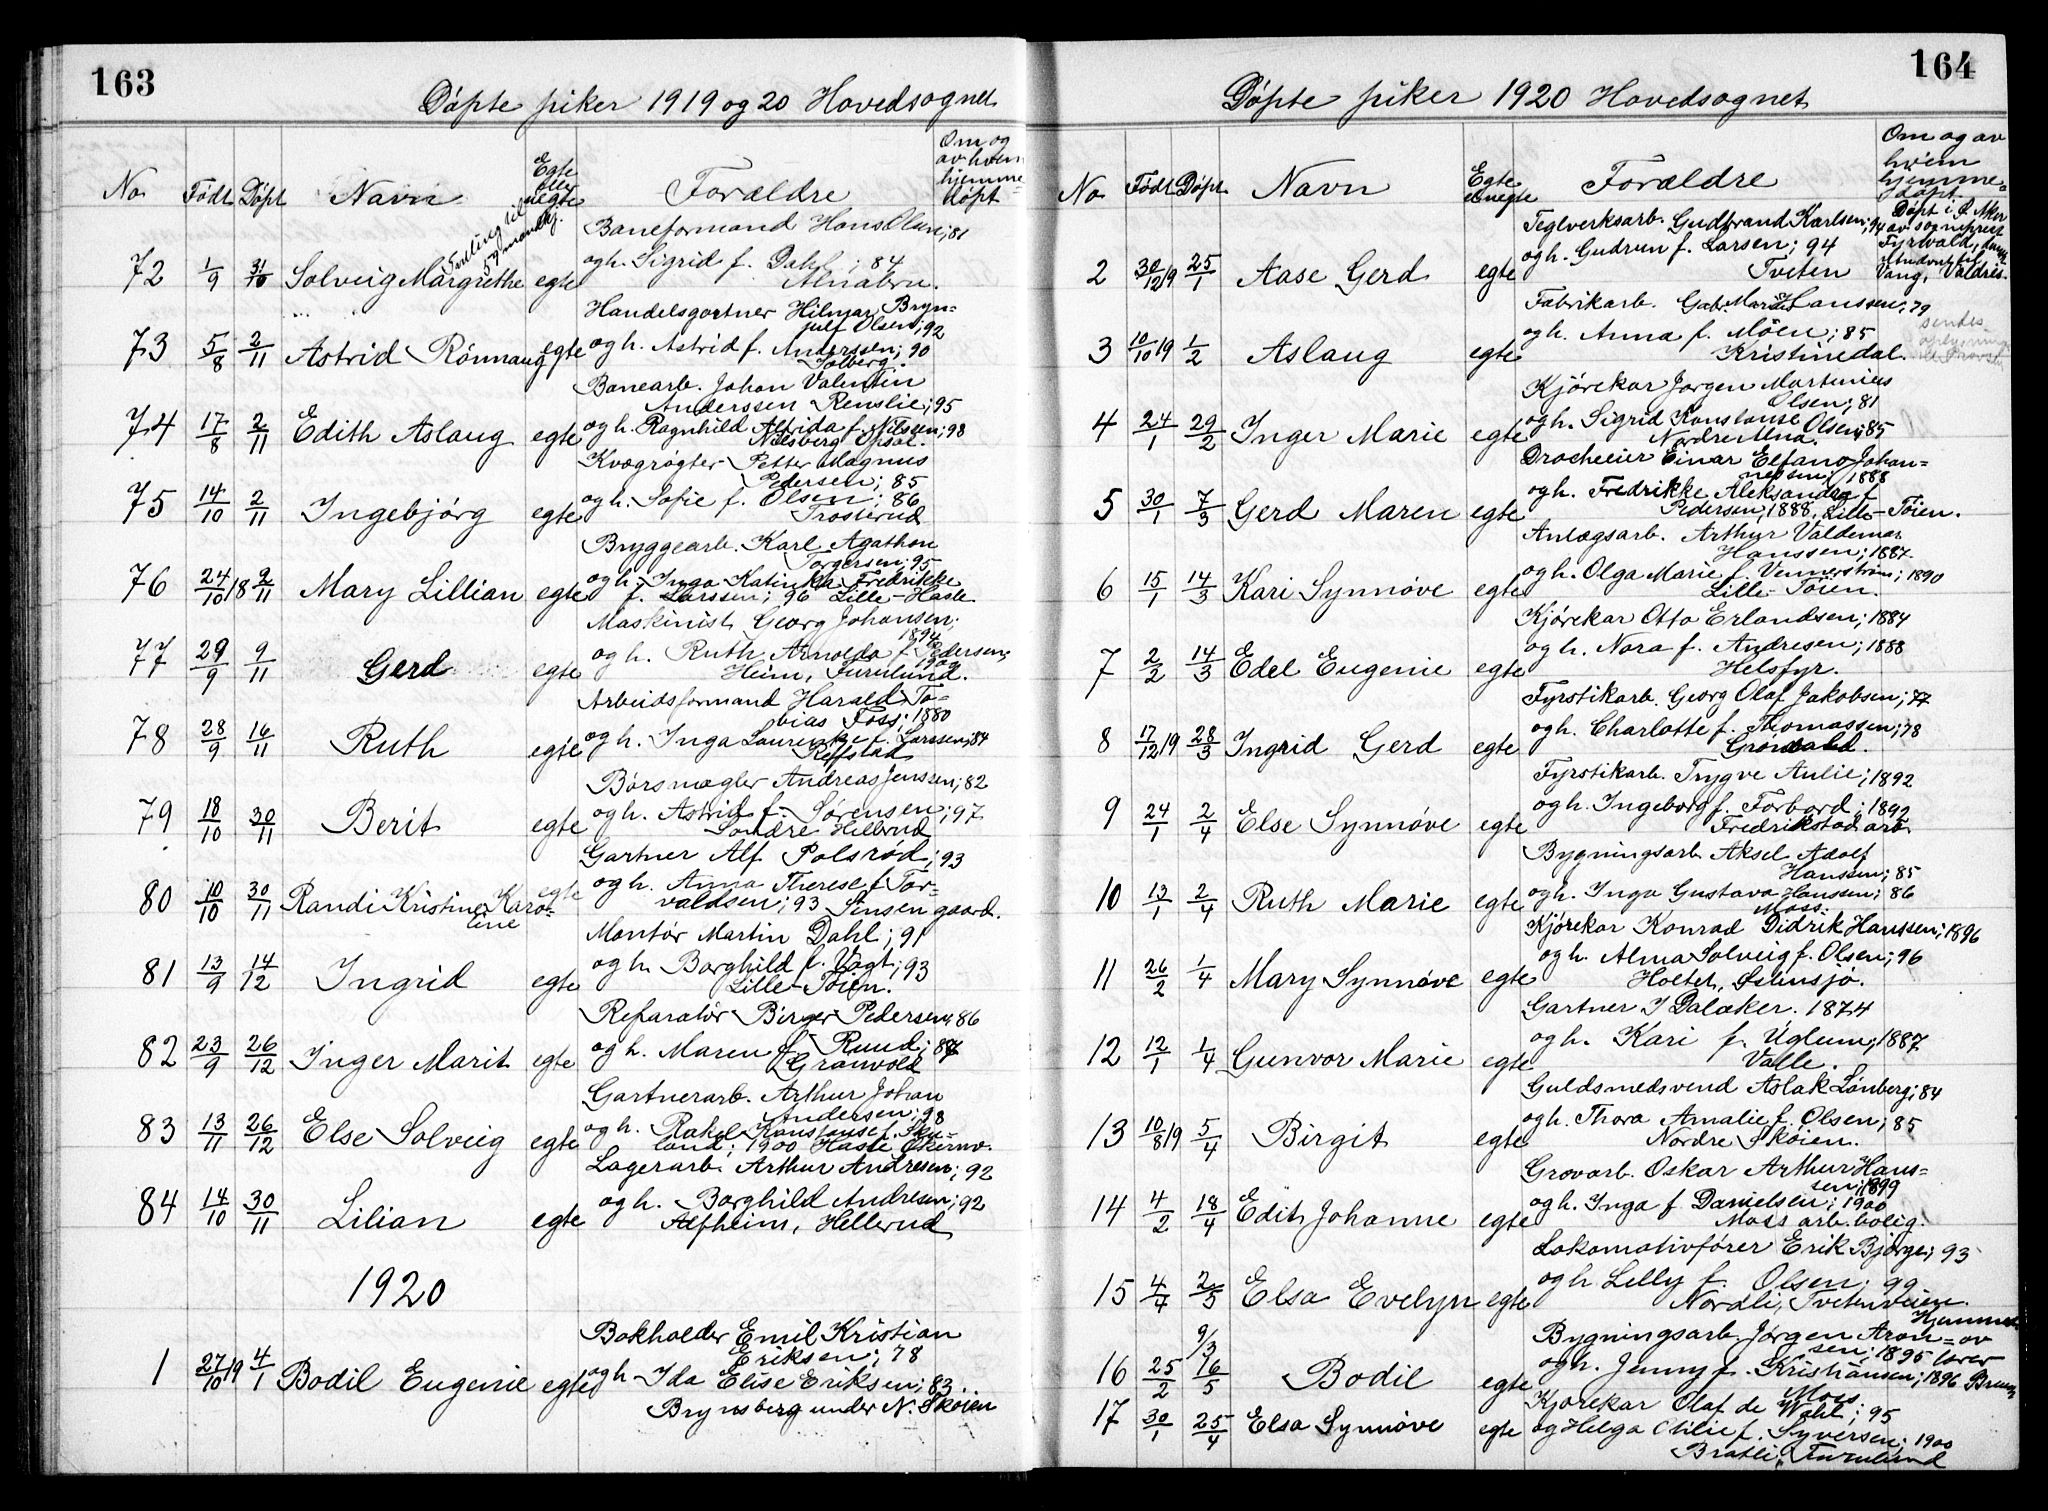 163
Døpte piker 1919 og 20 Hovedsognet
No Født Døpt Navn Egte eller uegte Forældre Om og av hvem hjemmedøpt
Baneformand Hans Olsen; 81
72 1/9 31/10 Solveig Margrethe egte og h. Sigrid f. Dahl; 84
Alnabru.
Handelsgartner Hilmar Bryn-
julf Olsen; 92
73 5/8 2/11 Astrid Rønnaug egte og h. Astrid f. Anderssen; 90
Solberg.
Banearb. Johan Valentin
Anderssen Renslie; 95
74 17/8 2/11 Edith Aslaug egte og h. Ragnhild Alfrida f. Nilssen; 98
Nilsberg Opsal.
Kvægrøgter Petter Magnus
Pedersen; 85
75 14/10 2/11 Ingebjørg egte og h. Sofie f. Olsen; 86
Trosterud
Bryggearb. Karl Agathon
Torgersen; 95
76 24/10 18 9/11 Mary Lillian egte og h. Inga Katinka Fredrikke
f. Larssen; 96 Lille-Hasle.
Maskinist Georg Johansen;
1894
77 29/9 9/11 Gerd egte og h. Ruth Arnolda f. Pedersen;
1909
Heim, Furulund.
Arbeidsformand Harald To-
bias Foss; 1880
78 28/9 16/11 Ruth egte og h. Inga Laurentze f. Larssen; 84
Refstad
Børsmægler Andreas Jenssen; 82
79 18/10 30/11 Berit egte og h. Astrid f. Sørensen; 97
Søndre Hellerud
Gartner Alf Polsrød; 93
80 10/10 30/11 Randi Kristine Karo- egte og h. Anna Therese f. Tor-
line valdsen; 93 Sinsen gaard.
Montør Martin Dahl; 91
81 13/9 14/12 Ingrid egte og h. Borghild f. Vogt; 93
Lille-Tøien.
Reparatør Birger Pedersen; 86
82 23/9 26/12 Inger Marit egte og h. Maren f. Ruud; 87
Granvold
Gartnerarb. Arthur Johan
Andersen; 98
83 13/11 26/12 Else Solveig egte og h. Rakel Konstanse f.
land; 1900 Hasle Økernv.
Lagerarb. Arthur Andresen; 92
84 14/10 30/11 Lilian egte og h. Borghild Andresen; 92
Alfheim, Hellerud
1920
Bokholder Emil Kristian
Eriksen; 78
1 27/10 19 4/1 Bodil Eugenie egte og h. Ida Elise Eriksen; 83
Brynsberg under N. Skøien
164
Døpte piker 1920 Hovedsognet
No Født Døpt Navn Egte eller uegte Forældre Om og av hvem hjemmedøpt
Teglverksarb. Gudbrand Karlsen; 94 Døpt i Ø. Aker
av sogneprest
2 30/12 19 25/1 Aase Gerd egte og h. Gudrun f. Larsen; 94 Fyrwald,
Tveten Vang, Valdres.
Fabrikarb. Gab. Marius Hanssen; 79
3 10/10 19 1/2 Aslaug egte og h. Anna f. Möen; 85
Kristinedal.
Kjørekar Jørgen Martinius
Olsen; 81
4 24/1 29/2 Inger Marie egte og h. Sigrid Konstanse Olsen; 85
Nordre Alna.
Drocheeier Einar Elfano Johan-
nessen; 1888
5 30/1 7/3 Gerd Maren egte og h. Fredrikke Aleksandra f
Pedersen, 1888, Lille-Tøien.
Anlægsarb. Arthur Valdemar
Hanssen; 1887
6 15/1 14/3 Kari Synnøve egte og h. Olga Marie f. Vennerstrøm; 1890
Lille-Tøien.
Kjørekar Otto Erlandsen; 1884
7 2/2 14/3 Edel Eugenie egte og h. Nora f. Andresen; 1888
Helsfyr.
Fyrstikarb. Georg Olaf Jakobsen; 77
8 17/12 19 28/3 Ingrid Gerd egte og h. Charlotte f. Thomassen; 78
Grønvold.
Fyrstikarb. Trygve Aulie; 1892
9 24/1 2/4 Else Synnøve egte og h. Ingeborg f. Forbord; 1892
Fredrikstad arb.
Bygningsarb. Aksel Adolf
Hanssen; 85
10 13/1 2/4 Ruth Marie egte og h. Inga Gustava Hanssen; 86
Moss.
Kjørekar Konrad Didrik Hanssen; 1896
11 26/2 1/4 Mary Synnøve egte og h. Alma Solveig f. Olsen; 96
Holtet, Østensjø.
Gartner I Dalaker. 1874
12 12/1 1/4 Gunvor Marie egte og h. Kari f. Uglum; 1887
Valle.
Guldsmedsvend Aslak Lønberg; 84
13 10/8 19 5/4 Birgit egte og h. Thora Amalie f. Olsen; 85
Nordre Skøien.
Grovarb. Oskar Arthur Hans-
sen; 1899
14 4/2 18/4 Edith Johanne egte og h. Inga f. Danielsen; 1900
Moss arb. bolig.
Lokomotivfører Erik Bjørge; 93
15 4/4 2/5 Elsa Evelyn egte og h. Lilly f. Olsen; 99
Nordli, Tvetenveien.
Bygningsarb. Jørgen Aron- Hjemmed. av
9/3 sen; 1895 lærer
16 25/2 16/5 Bodil egte og h. Jenny f. Kristiansen; 1896
Moss
Kjørekar Olaf de Wahl; 95
17 30/1 25/4 Elsa Synnøve egte og Helga Otilie f. Syversen; 1900
Bratli, Furulund